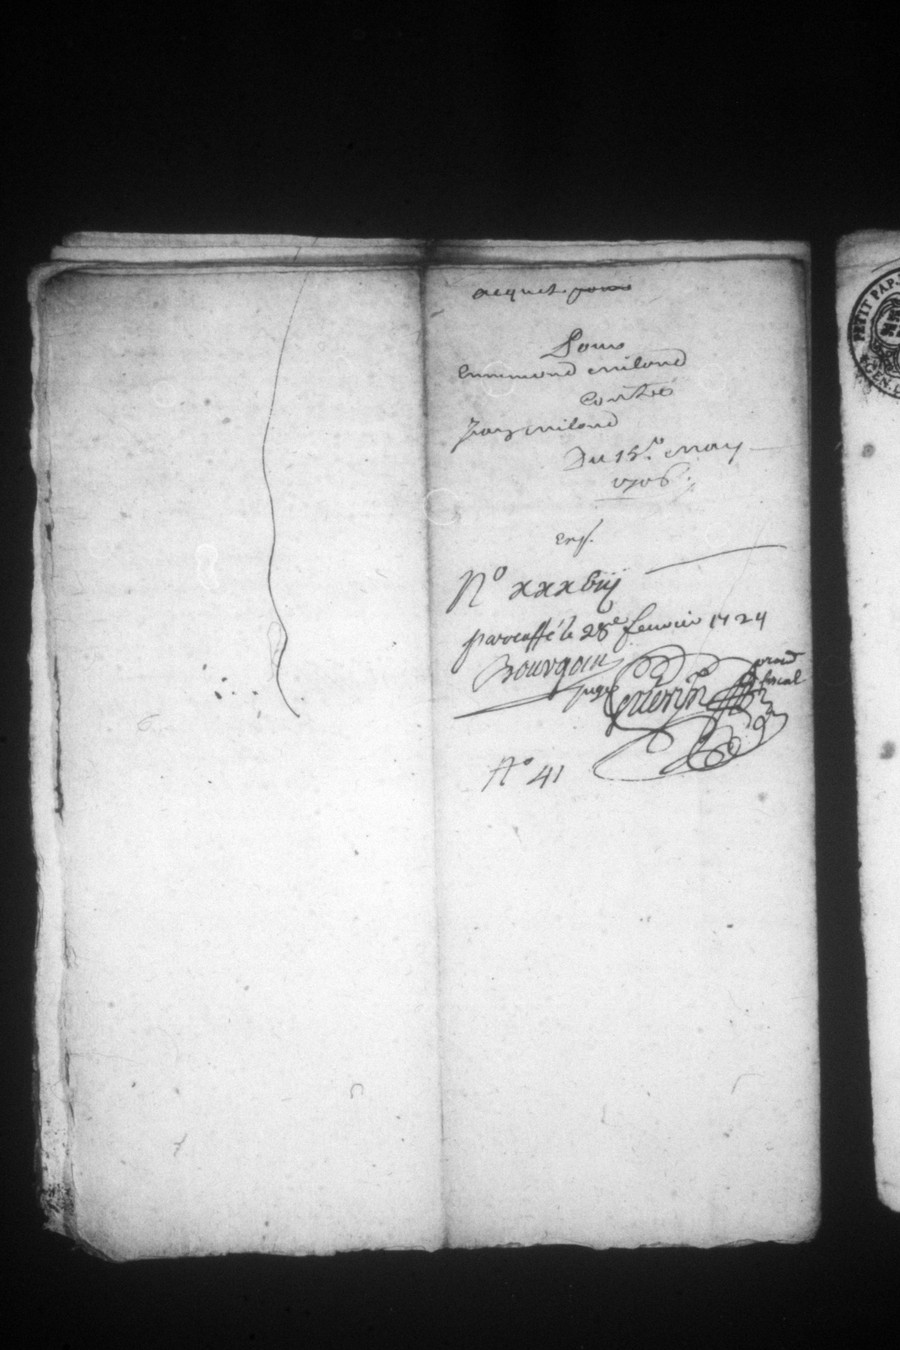 acquet pour
Pour
Emmond Milond
Contre
Franç Milond
Du 15.e May
1706
enr.
No xxxbiij
paraffé le 28e fevrier 1724
Bourgoin
juge Guerin proc
fiscal
No 41
PETIT PAP
GEN